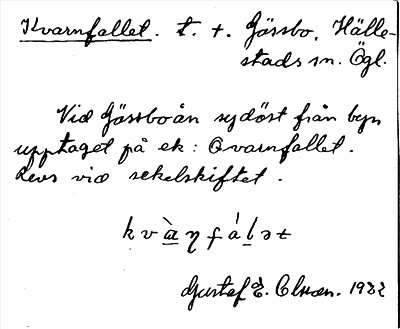 Kvarnfallet. t. t. Gässbo, Hälle-
stads sn. Ögl.
Vid Gässboån sydöst från byn
upptaget på ek: Qvarnfallet.
Revs vid sekelskiftet.
kvàŋfálət
Gustaf E. Olsson. 1932